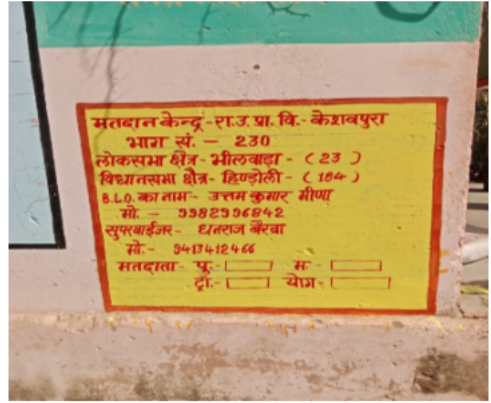 मतदान केन्द्र - रा.उ.प्रा.वि.- केशवपुरा
भाग सं. - 230
लोकसभा क्षैत्र - भीलवाडा - ( 23 )
विधानसभा क्षैत्र - हिण्डोली - ( 184 )
B.L.O. का नाम - उत्तम कुमार मीणा
मो. - 9982996842
सुपरवाईजर - धनराज बैरवा
मो. - 9413412466
मतदाता - पु.- म.-
ट्रां.- योग -